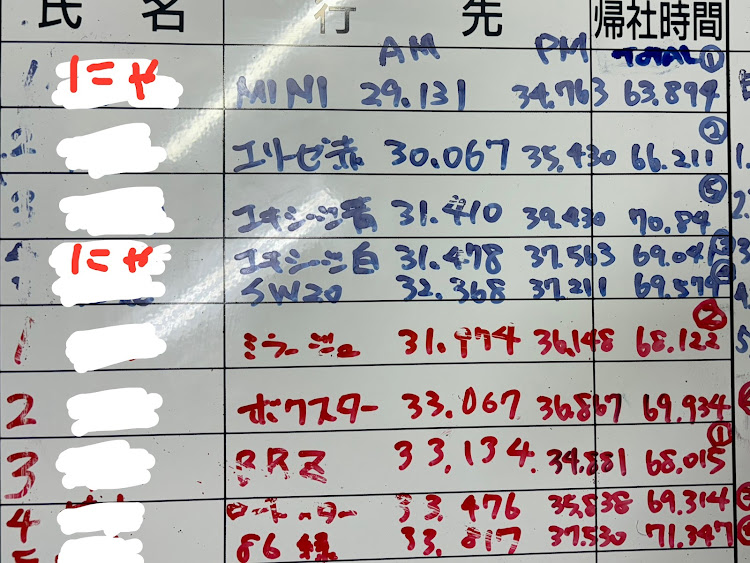 氏名 行先 帰社時間
AM PM TOTAL ①
1 にゃ MINI 29.131 34.763 63.894
②
2 エリーゼ赤 30.067 35.430 66.211
⑤
3 エキシージ青 31.410 39.430 70.84
にゃ エキシージ白 31.478 37.563 69.041
SW20 32.368 37.211 69.579
③
1 ミラージュ 31.974 36.148 68.122
2 ボクスター 33.067 36.867 69.934
①
3 BRZ 33.134 34.881 68.015
4 ロードスター 33.476 35.838 69.314
86 33.817 37.530 71.347